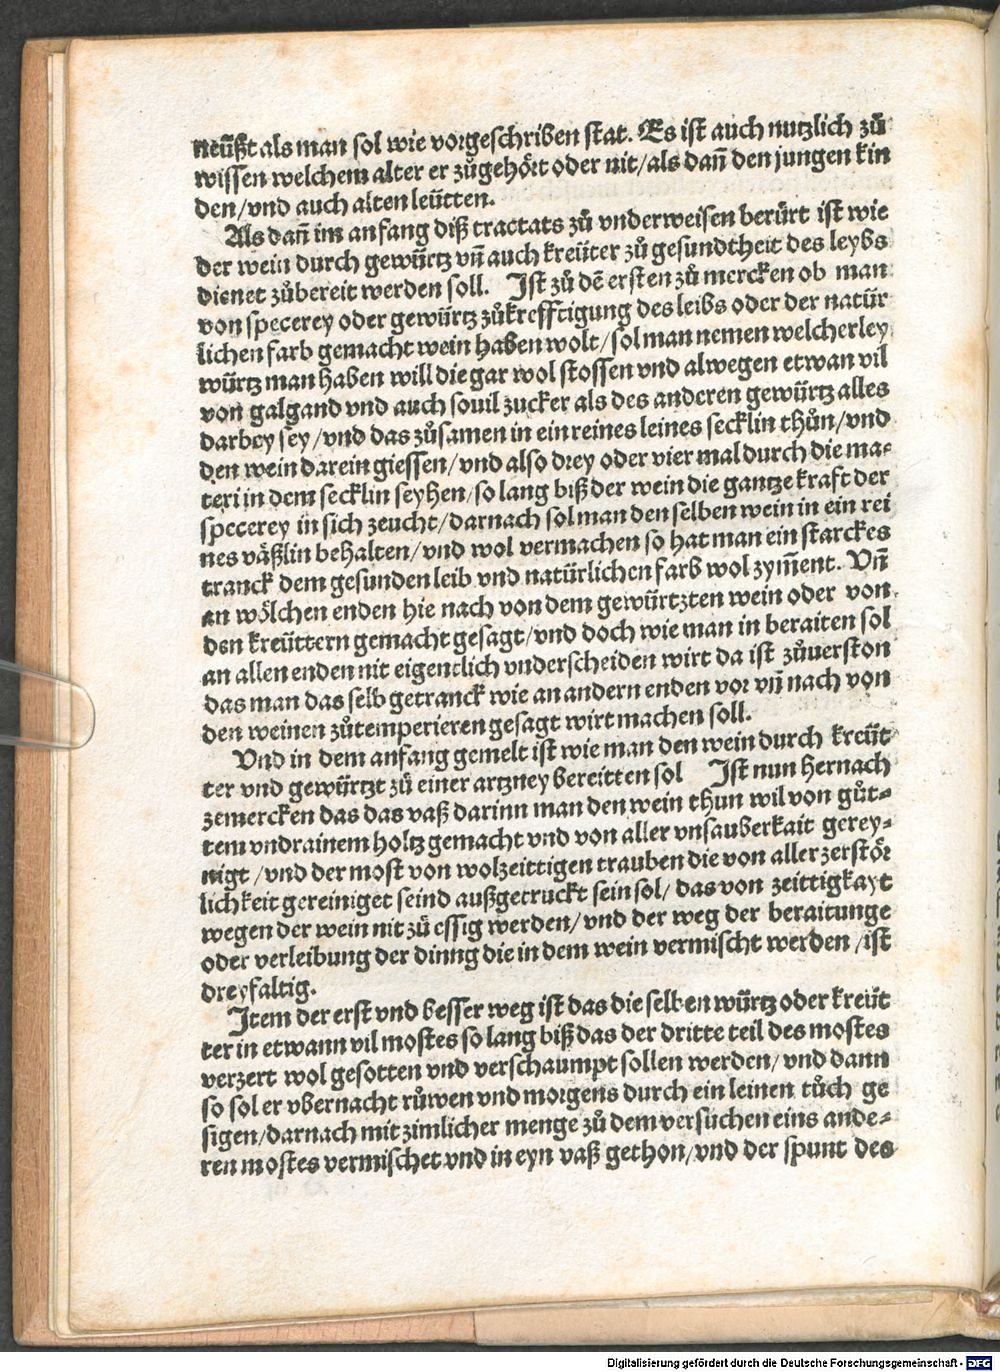 neüßt als man sol wie vorgeschriben stat. Es ist auch nutzlich zů
wissen welchem alter er zůgehört oder nit/als dañ den jungen kin
den/vnd auch alten leütten.
Als dañ im anfang diß tractats zů vnderweisen berürt ist wie
der wein durch gewürtz vñ auch kreüter zů gesundtheit des leybs
dienet zůbereit werden soll. Ist zů dē ersten zů mercken ob man
von specerey oder gewürtz zůkrefftigung des leibs oder der natür
lichen farb gemacht wein haben wolt/sol man nemen welcherley
würtz man haben will die gar wol stossen vnd alwegen etwan vil
von galgand vnd auch souil zucker als des anderen gewürtz alles
darbey sey/vnd das zůsamen in ein reines leines secklin thůn/vnd
den wein darein giessen/vnd also drey oder vier mal durch die ma⸗
teri in dem secklin seyhen/so lang biß der wein die gantze kraft der
specerey in sich zeucht/darnach sol man den selben wein in ein rei
nes väßlin behalten/vnd wol vermachen so hat man ein starckes
tranck dem gesunden leib vnd natürlichen farb wol zym̄ent. Vñ
an wölchen enden hie nach von dem gewürtzten wein oder von
den kreüttern gemacht gesagt/vnd doch wie man in beraiten sol
an allen enden nit eigentlich vnderscheiden wirt da ist zůuerston
das man das selb getranck wie an andern enden vor vñ nach von
den weinen zůtemperieren gesagt wirt machen soll.
Vnd in dem anfang gemelt ist wie man den wein durch kreüt
ter vnd gewürtzt zů einer artzney bereitten sol Ist nun hernach
zemercken das das vaß darinn man den wein thun wil von gůt⸗
tem vndrainem holtz gemacht vnd von aller vnsauberkait gerey⸗
nigt/vnd der most von wolzeittigen trauben die von aller zerstör
lichkeit gereiniget seind außgetruckt sein sol/das von zeittigkayt
wegen der wein nit zů essig werden/vnd der weg der beraitunge
oder verleibung der dinng die in dem wein vermischt werden/ist
dreyfaltig.
Item der erst vnd besser weg ist das die selben würtz oder kreüt
ter in etwann vil mostes so lang biß das der dritte teil des mostes
verzert wol gesotten vnd verschaumpt sollen werden/vnd dann
so sol er vbernacht růwen vnd morgens durch ein leinen tůch ge
sigen/darnach mit zimlicher menge zů dem versuchen eins ande⸗
ren mostes vermischet vnd in eyn vaß gethon/vnd der spunt des
Digitalisierung gefördert durch die Deutsche Forschungsgemeinschaft - DFG